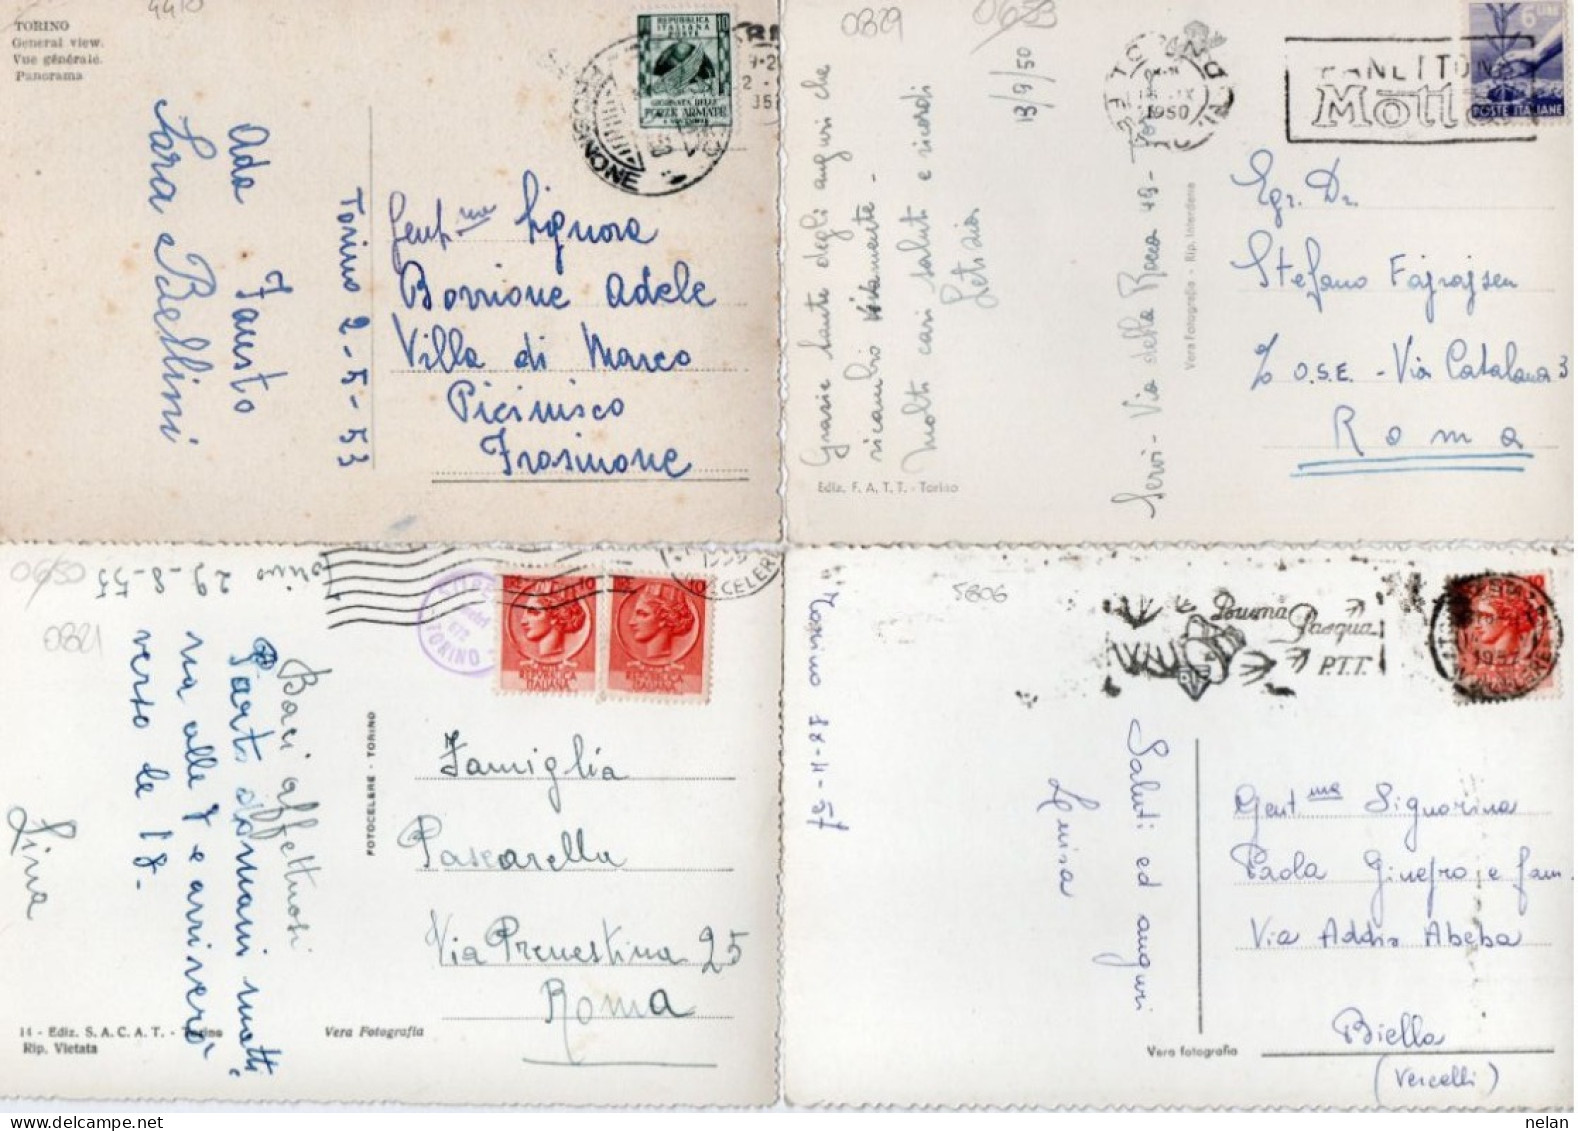 4410
TORINO
General view.
Vue générale.
Panorama
REPUBBLICA
ITALIANA
POSTE
10
GIORNATA DELLE
FORZE ARMATE
4 NOVEMBRE
FROSINONE
Ada Fausto
Sara e Bellini
Torino 2-5-53
Gent.ma Signora
Borrione Adele
Villa di Marco
Picinisco
Frosinone
0829
0653
13/9/50
1950
PANETTON
Motta
6 LIRE
POSTE ITALIANE
Grazie tante degli auguri che
ricambio vivamente -
Molti cari saluti e ricordi
Letizia
Servi - Via della Rocca 49 -
Vera Fotografia - Rip. Interdetta
Ediz. F. A. T. T. - Torino
Egr. Dr.
Stefano Fajrajsen
c/o O.S.E. - Via Catalana 3
Roma
0650
0821
Torino 29-8-55
TORINO
10
10
REPVBBLICA
ITALIANA
REPVBBLICA
ITALIANA
Baci affettuosi
Parto domani matti
na alle 7 e arriverò
verso le 18.
Lina
FOTOCELERE - TORINO
Famiglia
Pascarella
Via Prenestina 25
Roma
14 - Ediz. S. A. C. A. T. - Torino
Rip. Vietata
Vera Fotografia
5806
Buona Pasqua
P.T.T.
10
1957
18-4-57
Saluti ed auguri
Luisa
Gent.ma Signorina
Paola Ginefro e fam.
Via Addis Abeba
Biella
(Vercelli)
Vera fotografia
nelan
www.delcampe.net